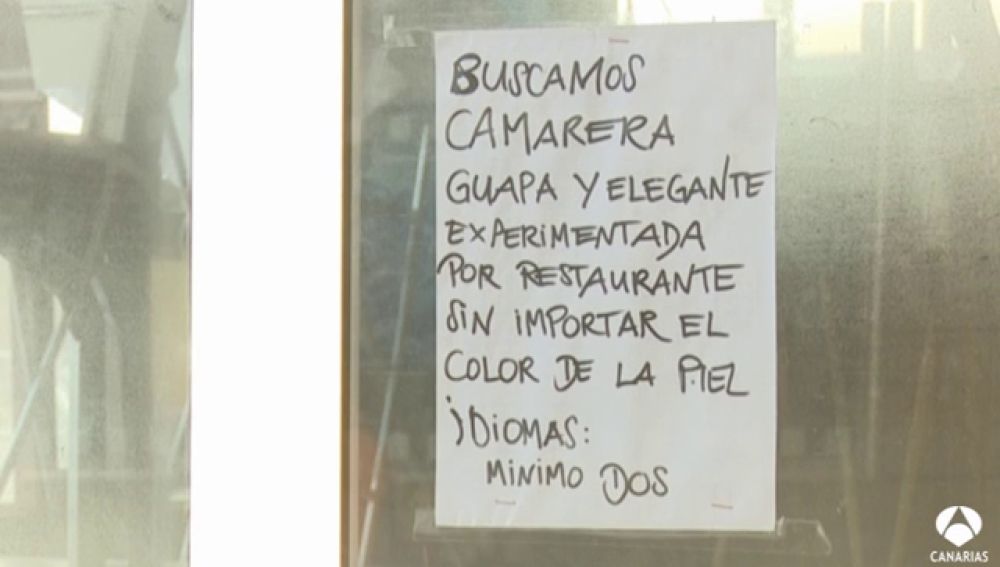 BUSCAMOS
CAMARERA
GUAPA Y ELEGANTE
EXPERIMENTADA
POR RESTAURANTE
SIN IMPORTAR EL
COLOR DE LA PIEL
IDIOMAS:
MINIMO DOS
CANARIAS